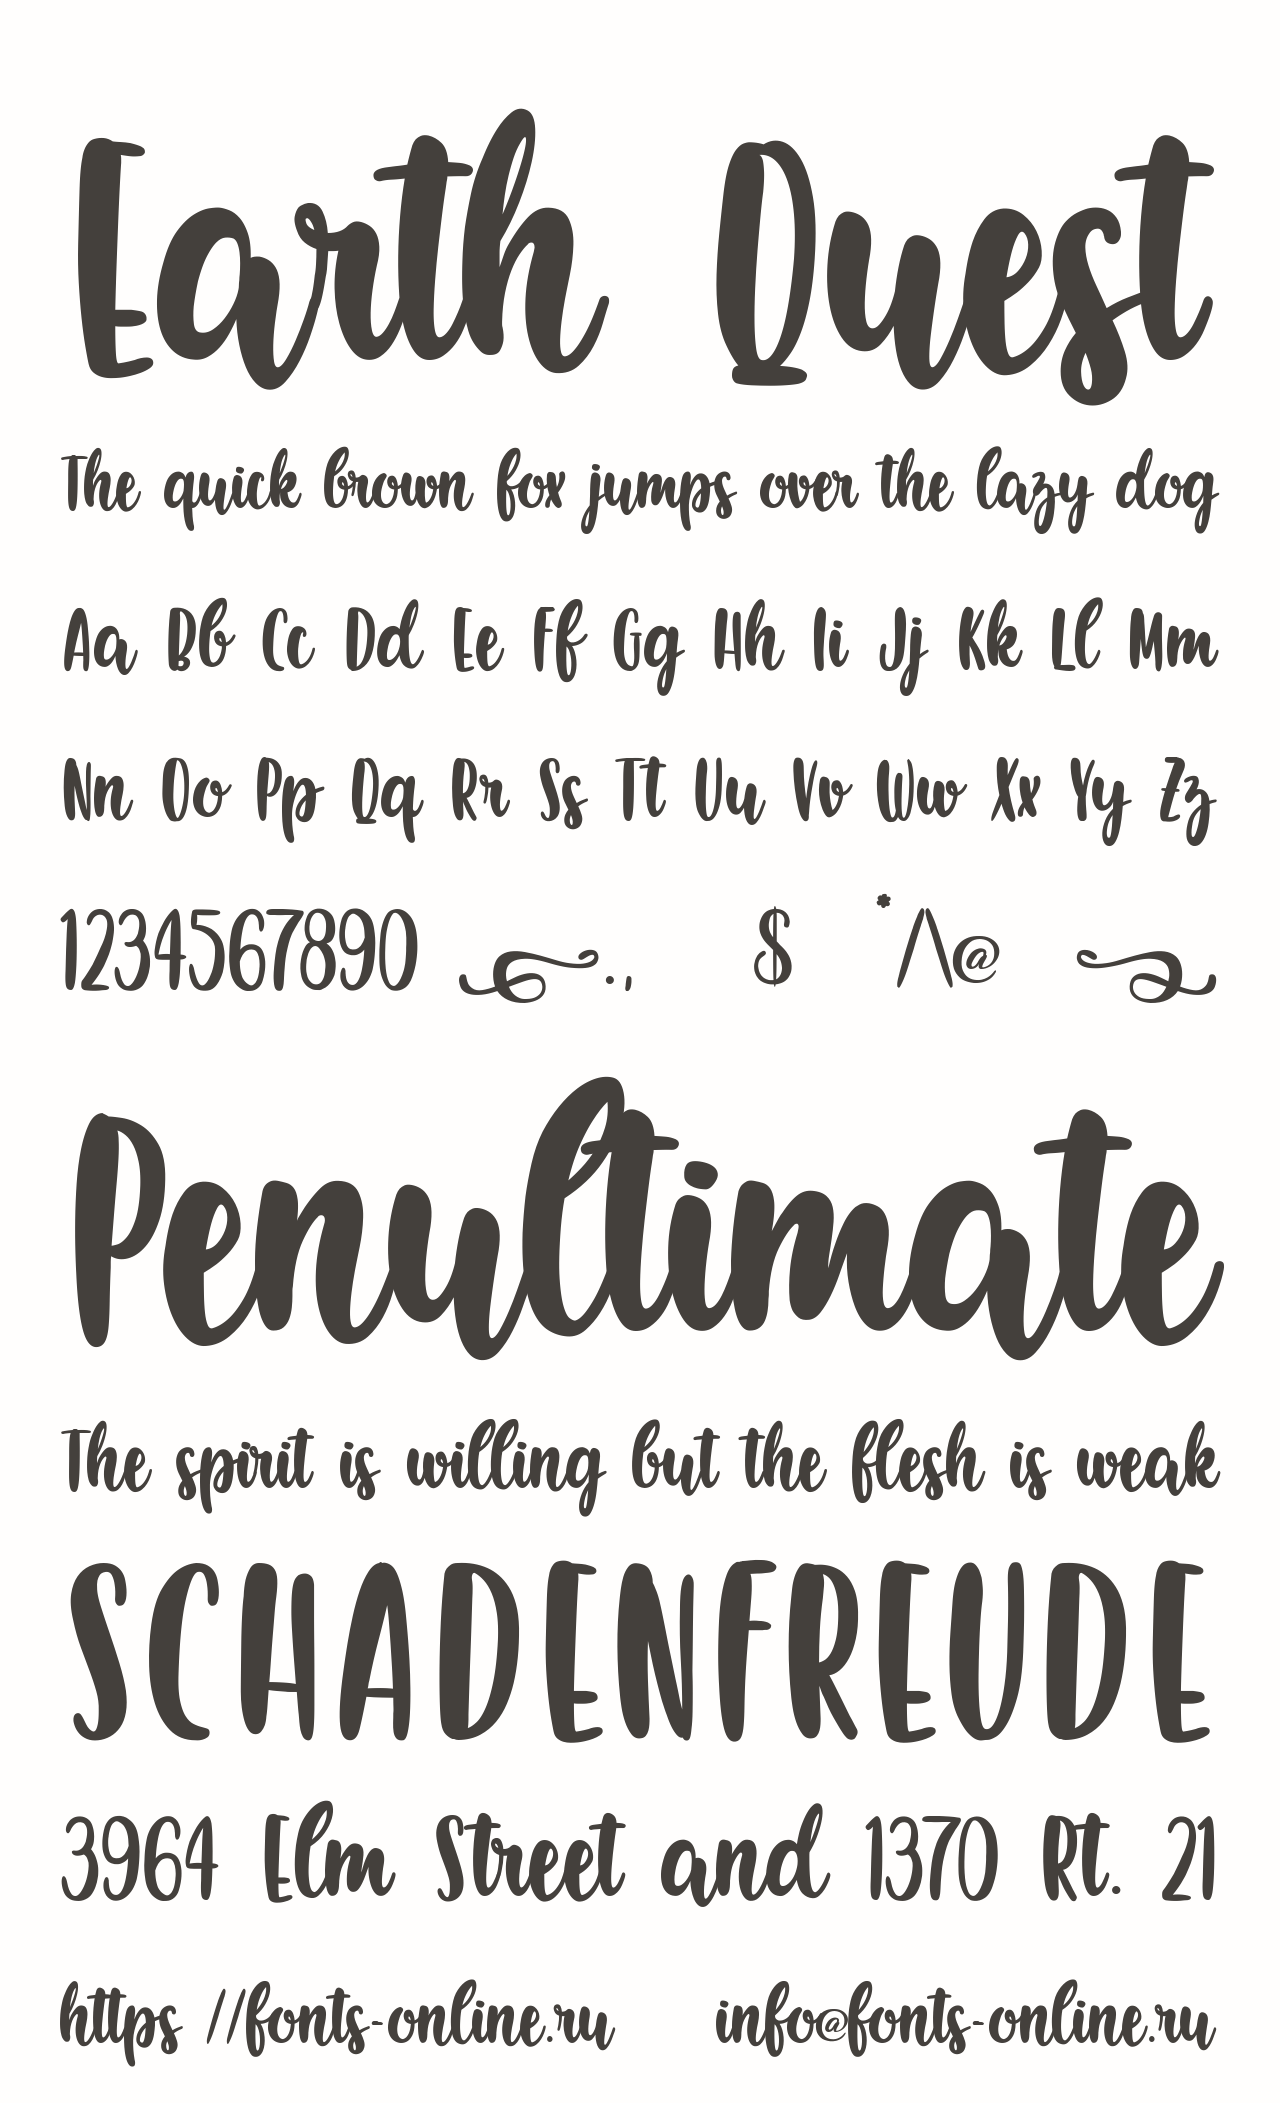 Earth Quest
The quick brown fox jumps over the lazy dog
Aa Bb Cc Dd Ee Ff Gg Hh Ii Jj Kk Ll Mm
Nn Oo Pp Qq Rr Ss Tt Uu Vv Ww Xx Yy Zz
1234567890 ., $ * /\@
Penultimate
The spirit is willing but the flesh is weak
SCHADENFREUDE
3964 Elm Street and 1370 Rt. 21
https //fonts-online.ru info@fonts-online.ru